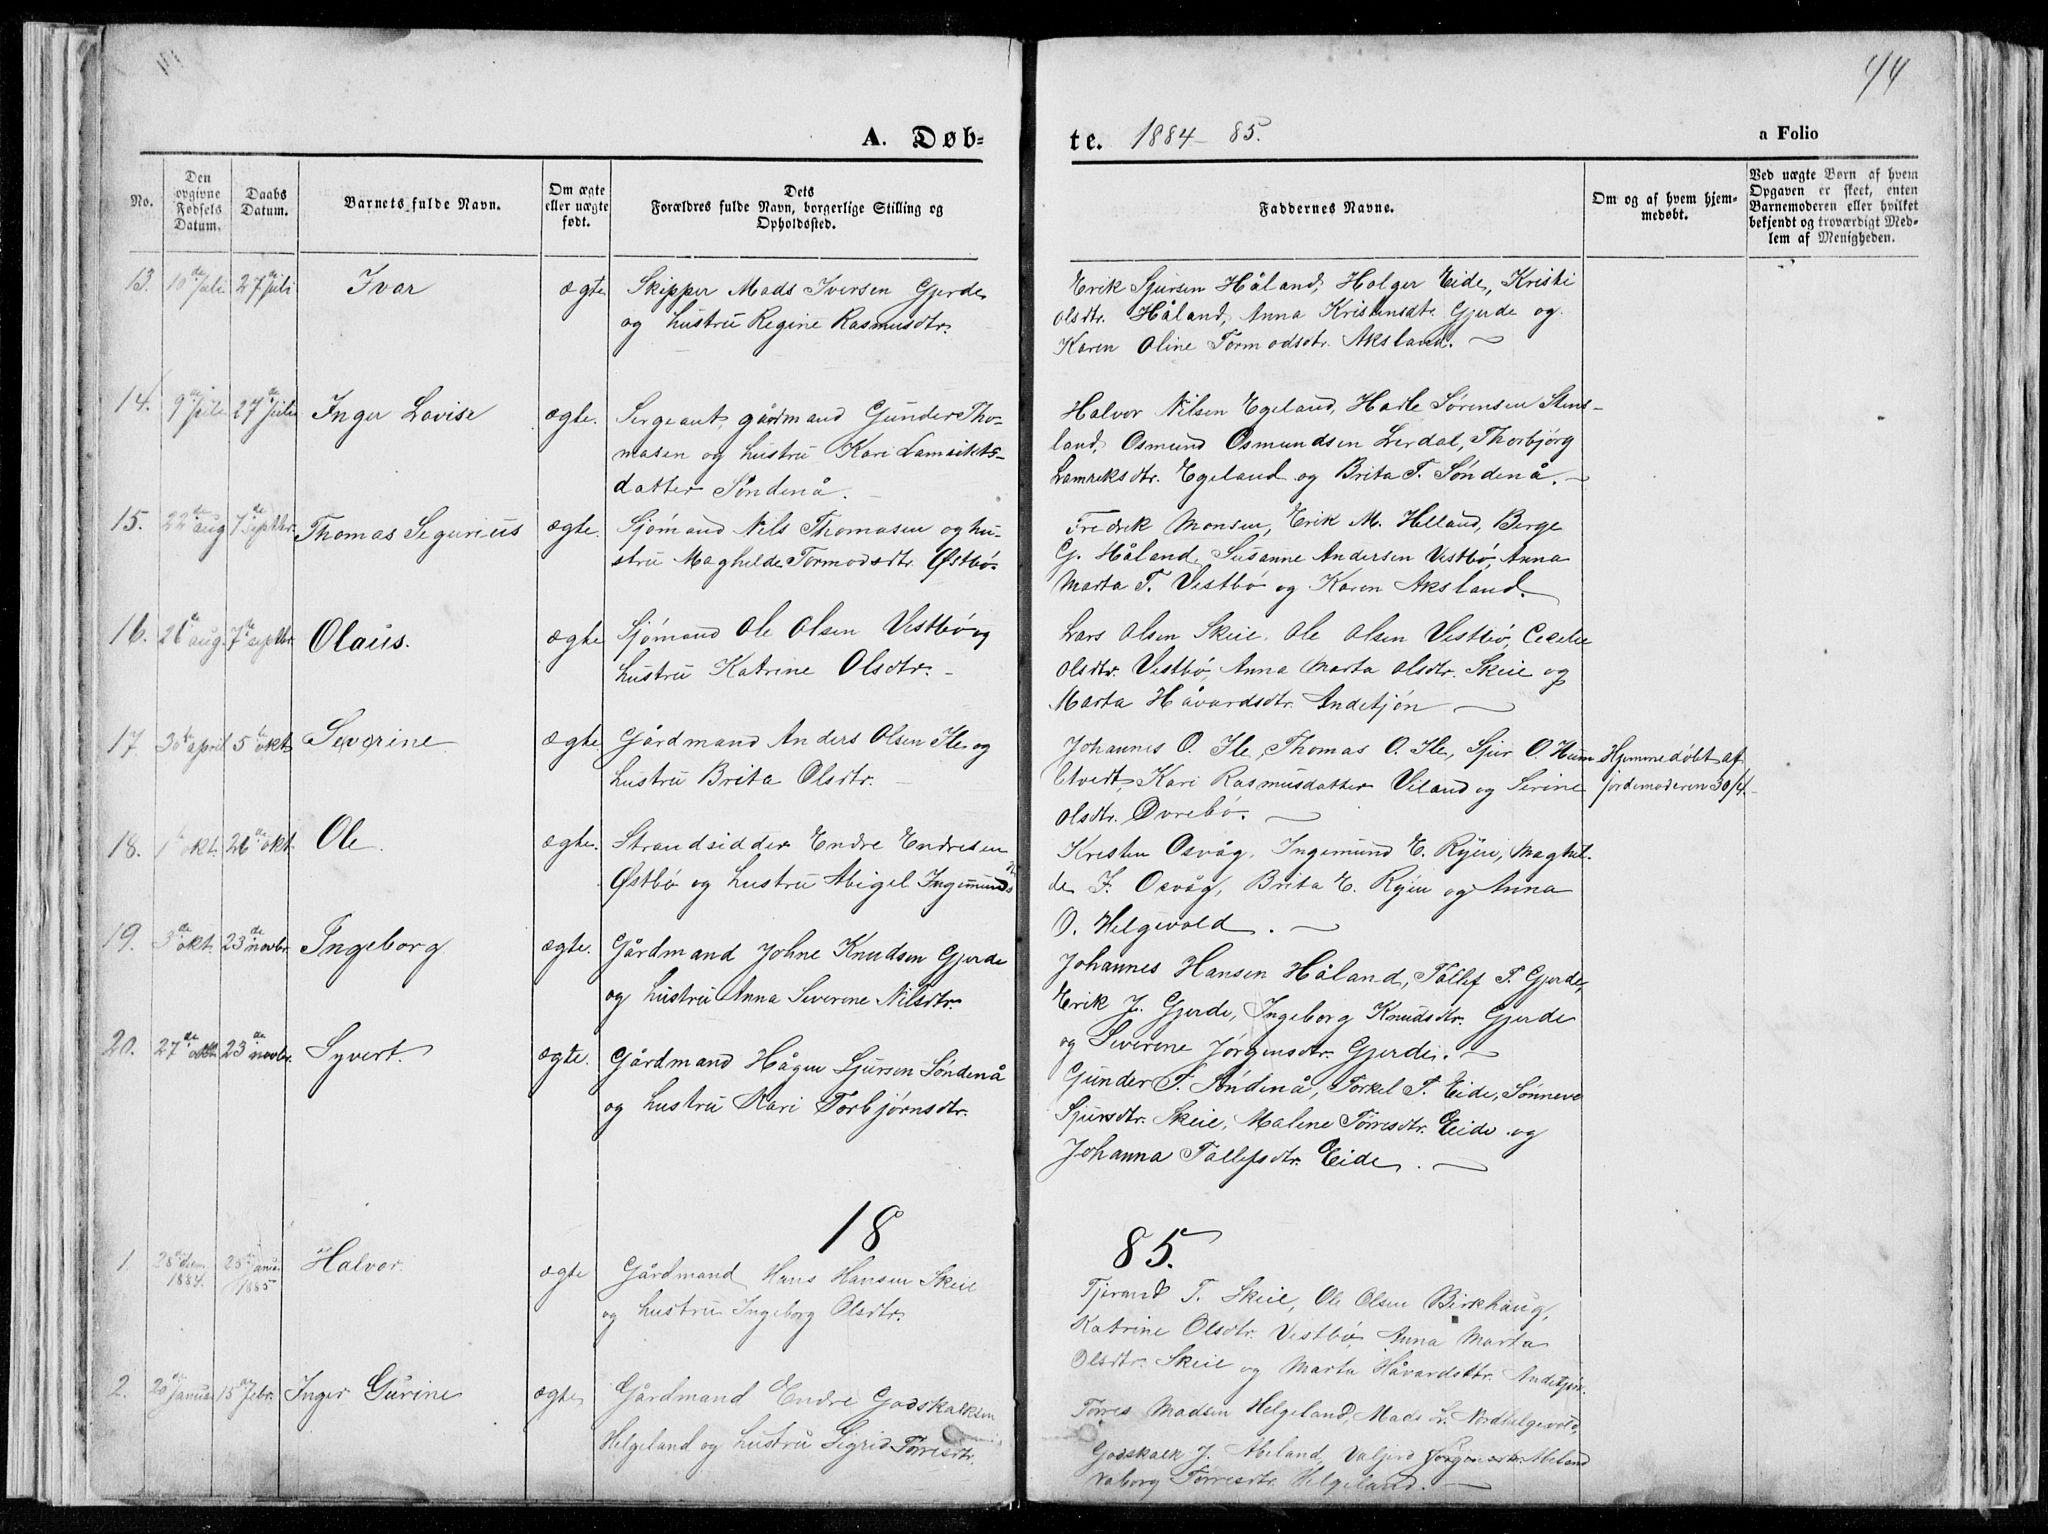 44
A. Døb-
te. 1884-85.
a Folio
No.
Den opgivne Fødsels Datum.
Daabs Datum.
Barnets fulde Navn.
Om ægte eller uægte født.
Dets Forældres fulde Navn, borgerlige Stilling og Opholdssted.
Faddernes Navne.
Om og af hvem hjemmedøbt.
Ved uægte Børn af hvem Opgaven er skeet, enten Barnemoderen eller hvilket bekjendt og troværdigt Medlem af Menigheden.
13. 10de Juli 27de Juli Ivar ægte Skipper Mads Iversen Gjerde
og hustru Regine Rasmusdtr.
Erik Sjursen Håland, Holger Eide, Kristi
Olsdtr. Håland, Anna Kristensdtr. Gjerde og
Karen Oline Tormodsdtr. Aksland.
14. 9de Juli 27de Juli Inger Lovise ægte. Sergeant, gårdmand Gunder Tho-
masen og hustru Kari Lamriks-
datter Søndenå.
Halvor Nilsen Egeland, Harle Sørensen Stens-
land, Osmund Osmundsen Lerdal, Thorbjørg
Lamreksdtr. Egeland og Brita T. Søndenå.
15. 22de aug 7de septbr. Thomas Segurius ægte. Sjømand Nils Thomasen og hu-
stru Maghilde Tormodsdtr. Østbø.
Fredrik Monsen, Erik M. Helland, Berge
G. Håland, Susanne Andersen Vestbø, Anna
Marta T. Vestbø og Karen Aksland.
16. 26de aug. 7de septbr. Olaus. ægte Sjømand Ole Olsen Vestbø og
hustru Katrine Olsdtr.
Lars Olsen Skeie, Ole Olsen Vestbø, Cecelie
Olsdtr. Vestbø, Anna Marta Olsdtr. Skeie og
Marta Håvardsdtr. Andetjøn
17. 30te april 5te okt. Severine ægte Gårdmand Anders Olsen Ile og
hustru Brita Olsdtr.
Johannes O. Ile, Thomas O. Ile, Sjur O. Hum-
letvedt, Kari Rasmusdatter Veland og Serine
Olsdtr. Øvrebø.
Hjemmedøbt af
jordemoderen 30/4.
18. 1te okt. 26de okt. Ole. ægte. Strandsidder Endre Endresen
Østbø og hustru Abigel Ingemundsdtr
Kresten Osvåg, Ingemund E. Røjen, Maghil-
de F. Osvåg, Brita E. Røjen og Anna
O. Helgevold.
19. 3de okt. 23de novbr. Ingeborg ægte. Gårdmand Johne Knudsen Gjerde
og hustru Anna Severene Nilsdtr.
Johannes Hansen Håland, Tollef T. Gjerde,
Erik J. Gjerde, Ingeborg Knudsdtr. Gjerde
og Severene Jørgensdtr. Gjerde.
20. 27de okt. 23de novbr. Syvert. ægte. Gårdmand Hågen Sjursen Søndenå
og hustru Kari Torbjørnsdtr.
Gunder T. Søndenå, Torkel T. Eide, Sønneve
Sjursdtr. Skeie, Malene Tørresdtr. Eide og
Johanna Tollefsdtr. Eide.
18 85.
1. 28de decm. 1884. 25de Januar 1885 Halvor. ægte Gårdmand Hans Hansen Skeie
og hustru Ingeborg Olsdtr.
Tjerand T. Skeie, Ole Olsen Birkhaug,
Katrine Olsdtr. Vestbø, Anna Marta
Olsdtr. Skeie og Marta Håvardsdtr. Andetjøn.
2. 20de Januar 15de Febr. Inger Gurine ægte Gårdmand Endre Godskalksen
Helgeland og hustru Sigrid Tørresdtr.
Tørres Madsen Helgeland, Mads L. Nordhelgevold,
Godskalk J. Abeland, Valjerd Jørgensdtr. Abeland
Naborg Tørresdtr. Helgeland.